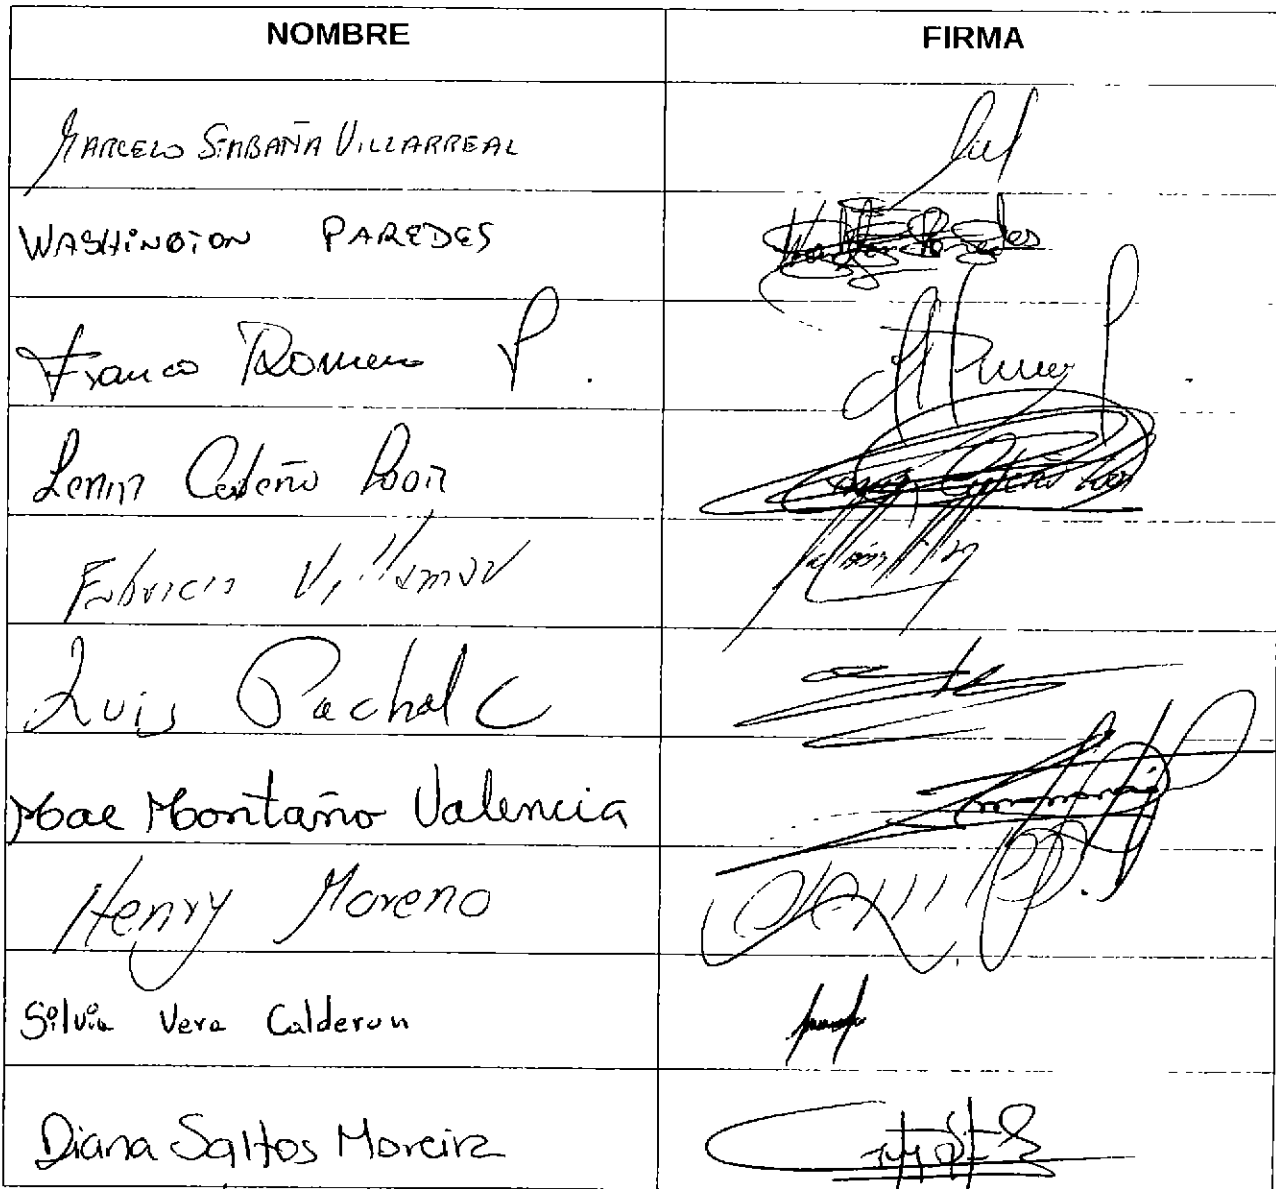 NOMBRE FIRMA
MARCELO SIMBAÑA VILLARREAL
WASHINGTON PAREDES
Franco Romero P.
Lenin Cedeño Loor
Fabricio Villamar
Luis Pachal C
Mae Montaño Valencia
Henry Moreno
Silvia Vera Calderon
Diana Saltos Moreira